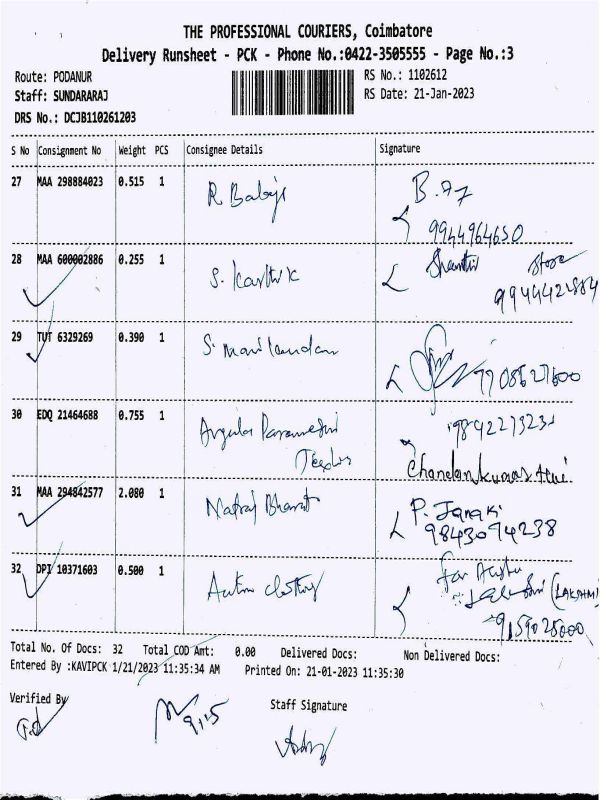 THE PROFESSIONAL COURIERS, Coimbatore
Delivery Runsheet - PCK - Phone No.:0422-3505555 - Page No.:3
Route: PODANUR RS No.: 1102612
Staff: SUNDARARAJ RS Date: 21-Jan-2023
DRS No.: DCJB110261203
S No Consignment No Weight PCS Consignee Details Signature
27 MAA 298884023 0.515 1 R. Babiji B.
9944964650
28 MAA 600002886 0.255 1 S. Karthik Shanthi Store
29 TUT 6329269 0.390 1 S. Manikandan 7708627600
30 EDQ 21464688 0.755 1
Chandankumar
31 MAA 294842577 2.080 1 Natraj Bharat P. Janaki
9843094238
32 DPI 10371603 0.500 1 clothing for
(LAKSHMI)
9159025000
Total No. Of Docs: 32 Total COD Amt: 0.00 Delivered Docs: Non Delivered Docs:
Entered By :KAVIPCK 1/21/2023 11:35:34 AM Printed On: 21-01-2023 11:35:30
Verified By Staff Signature
9:15